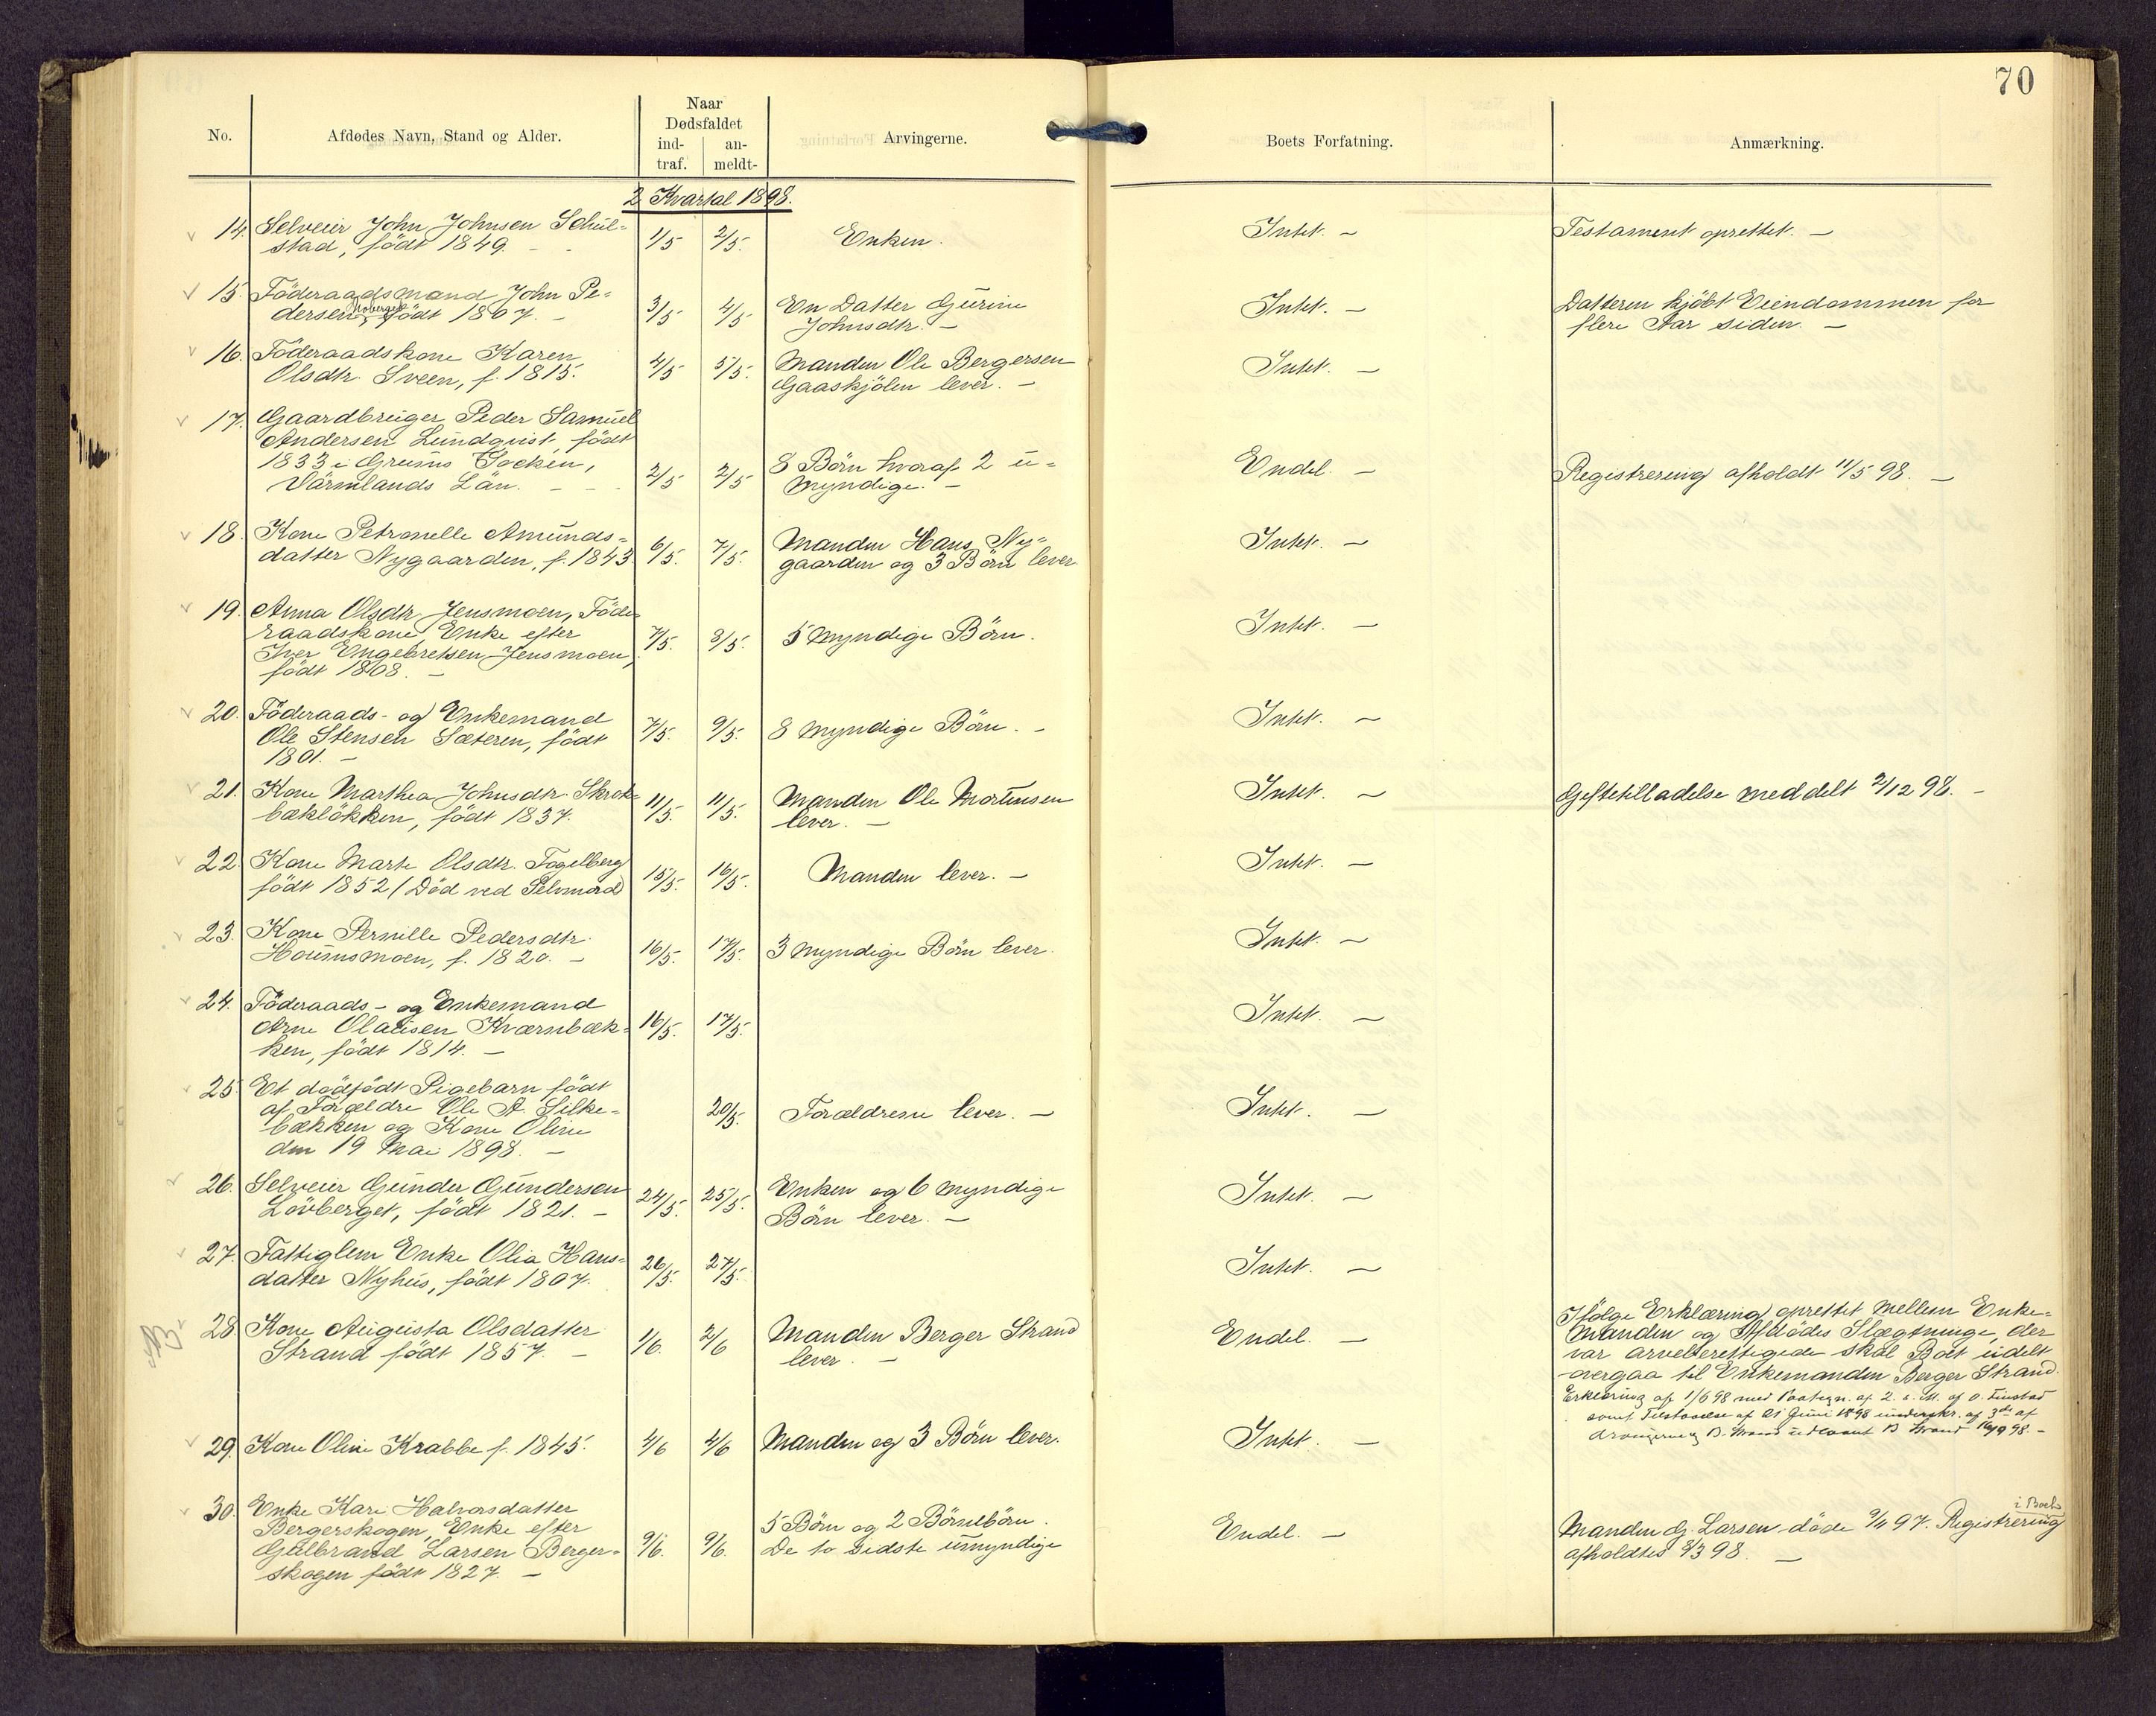 70
No.
Afdødes Navn, Stand og Alder.
Naar
Dødsfaldet
ind-
traf.
an-
meldt-
Arvingerne.
Boets Forfatning.
Anmærkning.
2 Kvartal 1898.
14. Selveier John Johnsen Schul- 1/5 2/5. Enken. Intet. - Testament oprettet. -
stad, født 1849. -
15. Föderaadsmand John Pe- 3/5 4/5 En Datter Gurine Intet. - Datteren kjöbt Eiendommen for
dersen Moberget, født 1807. - Johnsdtr. - flere Aar siden. -
16. Föderaadskone Karen 4/5 5/5. Manden Ole Bergersen Intet. -
Olsdtr. Sveen, f. 1815. Gaaskjölen lever. -
17. Gaardbruger Peder Samuel
Andersen Lundqvist, født
1833 i Grums Socken, 2/5 2/5 8 Börn hvoraf 2 u- Endel. - Registrering afholdt 11/5 98. -
Värmlands Län. - - - myndige. -
18. Kone Petronelle Amunds- 6/5. 7/5. Manden Hans Ny- Intet. -
datter Nygaarden, f. 1843. gaarden og 3 Börn lever
19. Anna Olsdtr. Jensmoen, Föde-
raadskone, Enke efter 7/5. 8/5. 5 myndige Börn. Intet. -
Iver Engebretsen Jensmoen,
født 1808. -
20. Föderaads- og Enkemand 7/5. 9/5. 8 myndige Börn. - Intet. -
Ole Stensen Sæteren, født
1801. -
21. Kone Marthea Johnsdtr. 11/5. 11/5. Manden Ole Mortensen Intet. - Giftetilladelse meddelt 2/12 98. -
bæklökken, født 1837. lever. -
22. Kone Marte Olsdtr. Fogelberg 15/5. 16/5. Manden lever. - Intet. -
født 1852 (Död ved Selvmord)
23. Kone Pernille Pedersdtr. 16/5. 17/5. 3 myndige Börn lever. Intet. -
moen, f. 1820. -
24. Föderaads- og Enkemand
Arne Olausen Kværnbæk- 16/5. 17/5. Intet. -
ken, født 1814. -
25. Et dödfödt Pigebarn födt
af Forældre Ole A. Silke- 20/5. Forældrene lever. - Intet. -
bækken og Kone Oline
den 19 Mai 1898. -
26. Selveier Gunder Gundersen 24/5. 25/5. Enken og 6 myndige Intet. -
Lövberget, födt 1821. - Börn lever. -
27. Fattiglem Enke Olia Hans- 26/5. 27/5. Intet. -
datter Nyhus, födt 1807.
28. Kone Augusta Olsdatter 1/6. 2/6 Manden Berger Strand Endel. - Ifölge Erklæring oprettet mellem Enke-
Strand födt 1857. - lever. - manden og Afdödes Slægtninge, der
var arveberettigede skal Boet udelt
overgaa til Enkemanden Berger Strand.
Erklæring af 1/6 98 med Paategn. af 2. s. M. af O. Finstad
samt Tilstaaelse af 21 Juni 1898 underskr. af 3de af
Arvingerne B. Strand 16/9 98. -
29. Kone Oline Krabbe f. 1845. 4/6 4/6 Manden og 3 Börn lever. Intet. -
30. Enke Kari Halvorsdatter
Bergerskogen, Enke efter 5 Börn og 2 Börnebörn. Endel. - Manden G. Larsen döde 9/11 97. Registrering i Boet
Gulbrand Larsen Berger- 9/6. 9/6. De to sidste umyndige afholdtes 8/3 98. -
skogen födt 1827. -